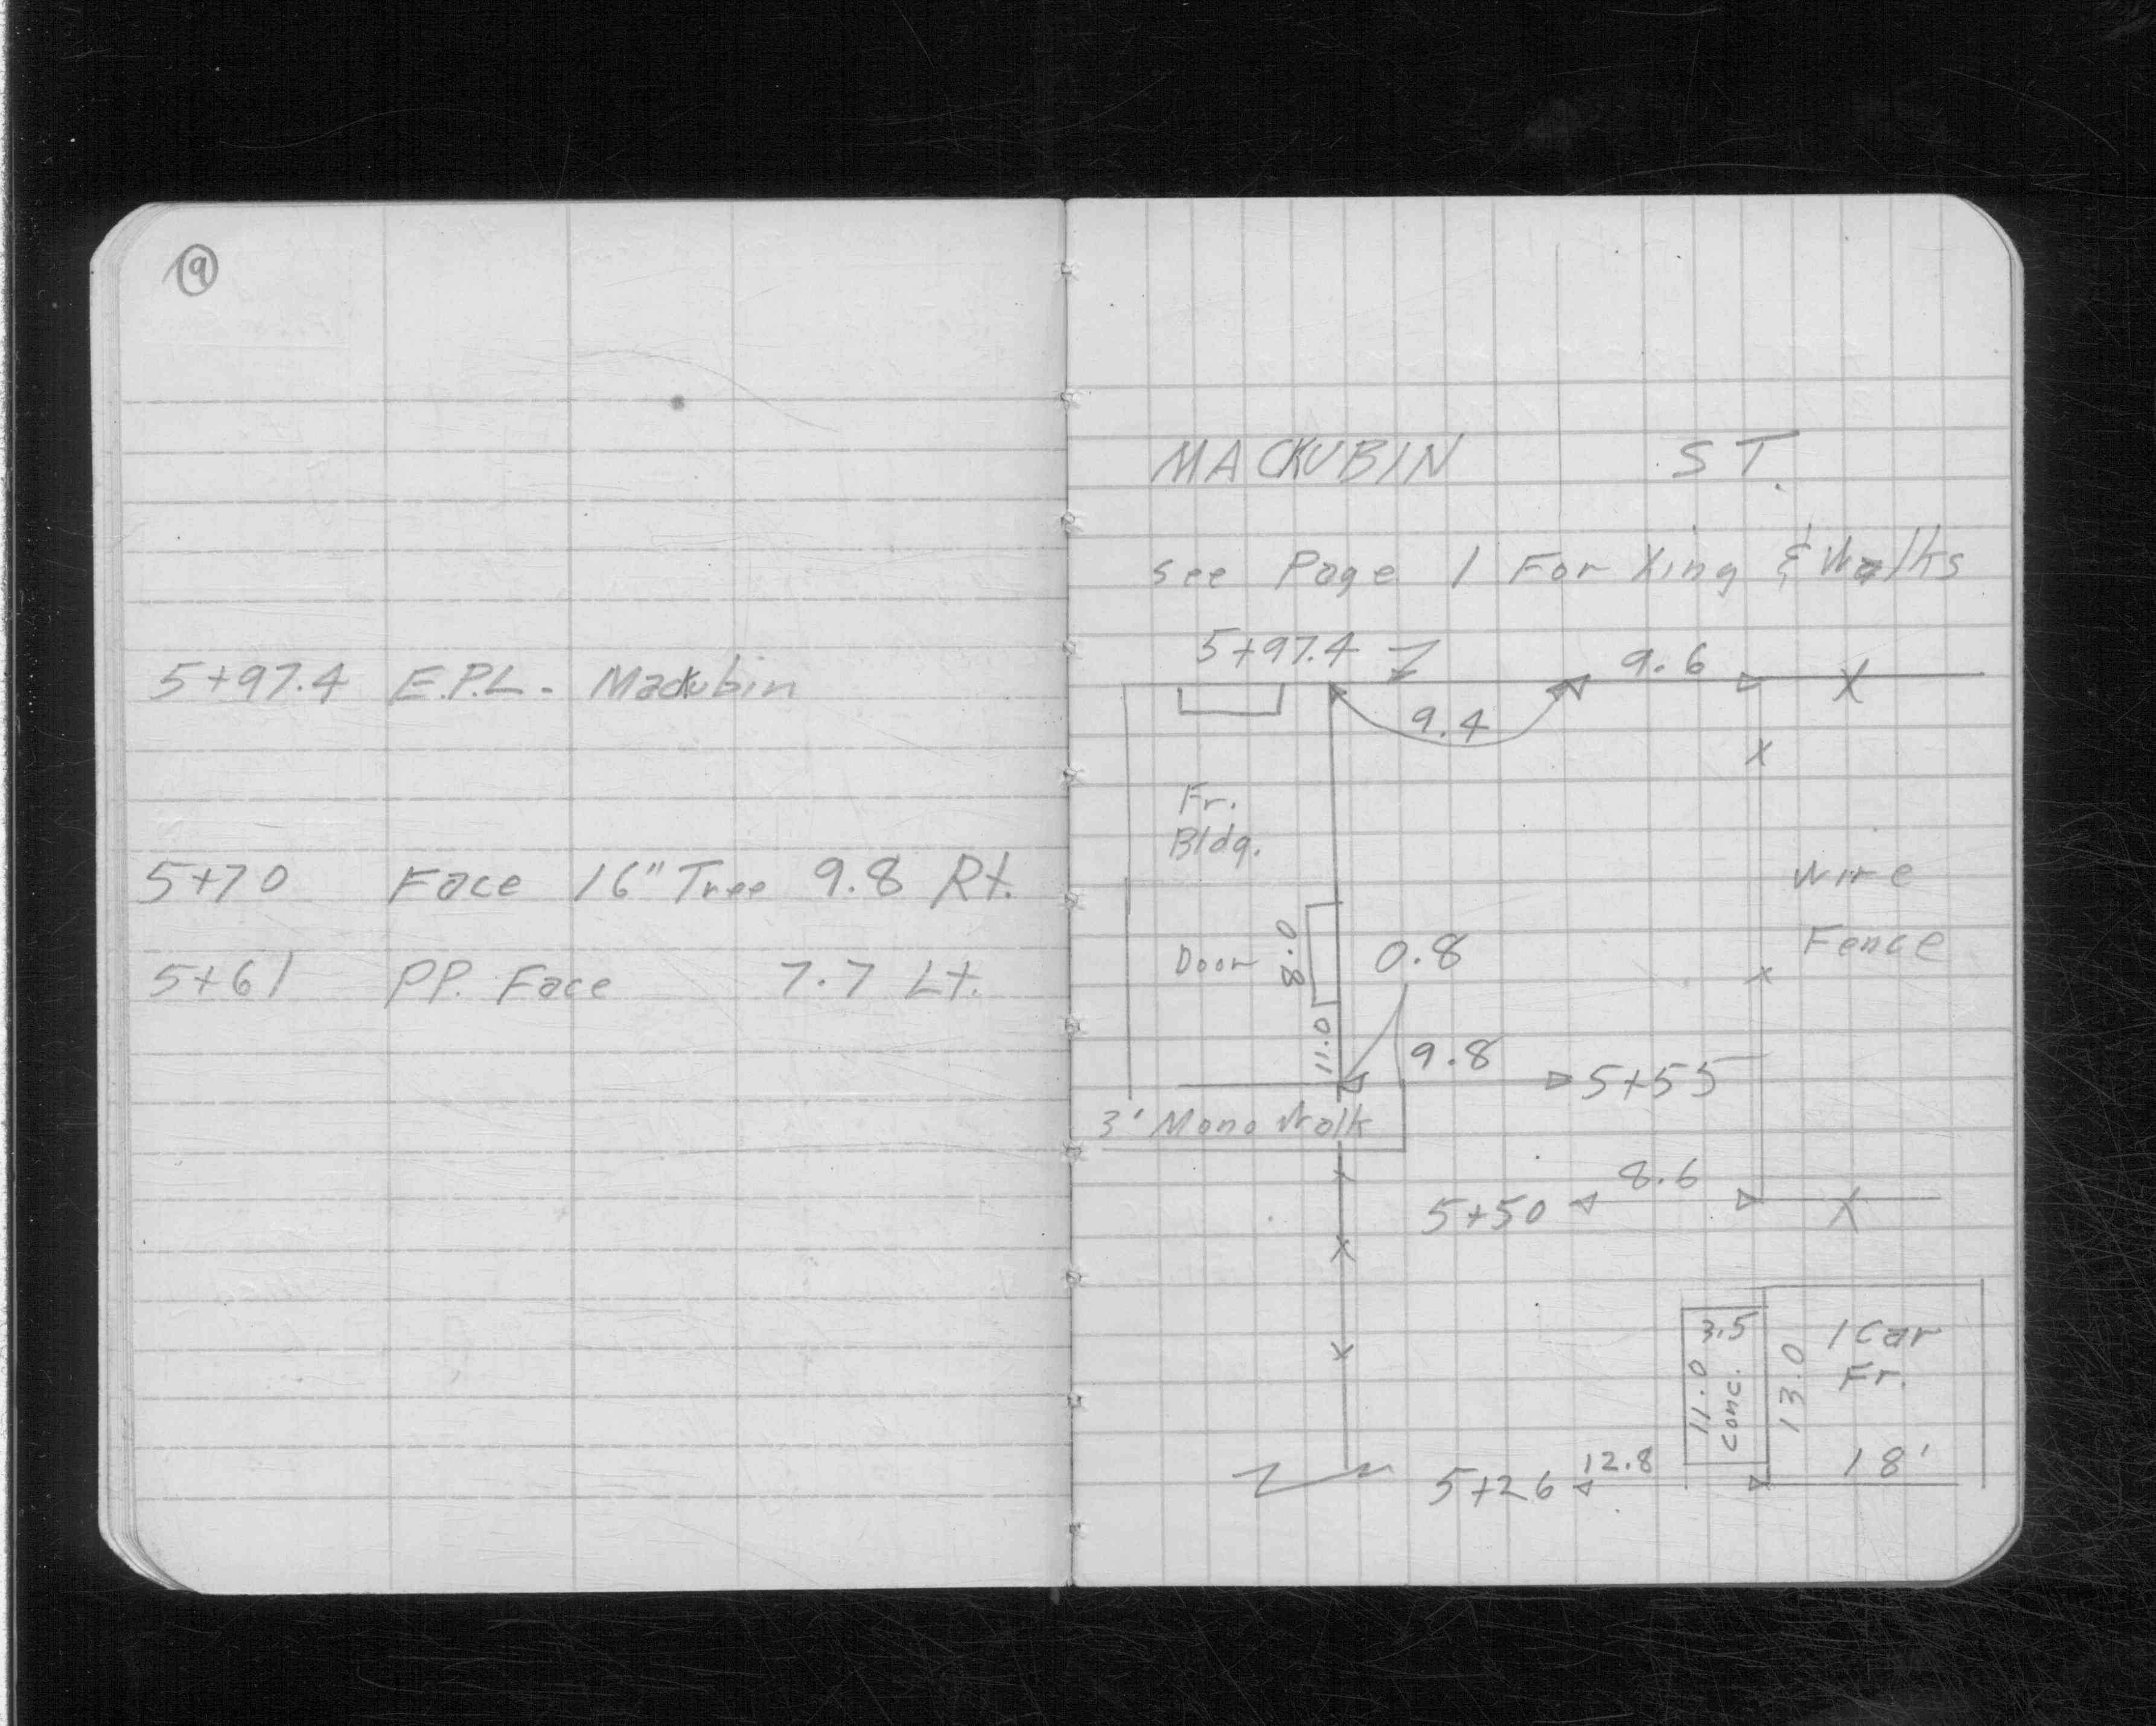 9
5+97.4 E.P.L. - Mackubin
5+70 Face 16" Tree 9.8 Rt.
5+61 P.P. Face 7.7 Lt.
MACKUBIN ST.
see Page 1 For Xing & Walks
5+97.4
9.6
9.4
Fr.
Bldg.
Wire
Fence
Door 8.0
0.8
11.0
9.8
5+55
3' Mono Walk
8.6
5+50
3.5
11.0
conc.
13.0
1 Car
Fr.
18'
12.8
5+26